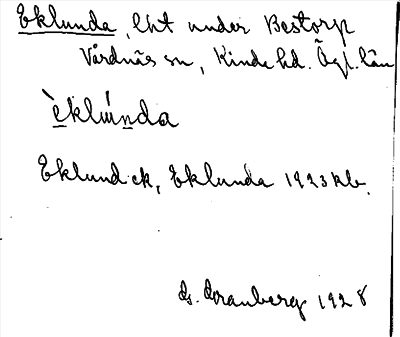 Eklunda, lht under Bestorp
Vårdnäs sn, Kinda hd. Ögl. län
èklùnda
Eklund ek, Eklunda 1923 kb.
G. Granberg 1928